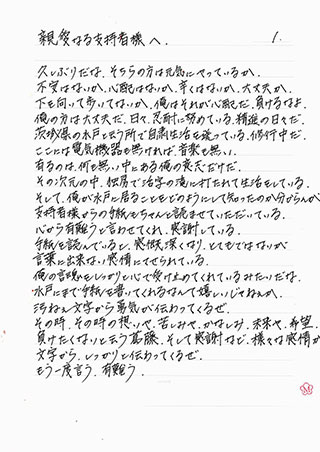 親愛なる支持者様へ. 1.
久しぶりだな、そちらの方は元気にやっているか.
不安はないか、心配はないか、辛くはないか、大丈夫か.
下を向いて歩いてないか、俺はそれが心配だ、負けるなよ
俺の方は大丈夫だ、日々、忍耐に努めている、精進の日々だ.
茨城県の水戸と云う所で自粛生活を送っている、修行中だ.
ここには電気機器も無ければ、音楽も無い、
有るのは、何も無い中にある俺の楽天だけだ.
その次元の中、独居で活字の滝に打たれて生活をしている.
そして、俺が水戸に居ることをどのようにして知ったのか分からんが
支持者様からの手紙をちゃんと読ませていただいている.
心から有難うと言わせてくれ、感謝している.
手紙を読んでいると、感慨深くなり、とてもではないが
言葉に出来ない感情にさせられている.
俺の言魂をしっかりと心で受け止めてくれているみたいだな.
水戸にまで手紙を書いてくれるなんて嬉しいじゃねぇか.
汚ねぇ文字から勇気が伝わってくるぜ.
その時、その時の想いや、苦しみや、かなしみ、未来や、希望
負けたくないと云う葛藤、そして感謝など、様々な感情が
文字から、しっかりと伝わってくるぜ.
もう一度言う、有難う.